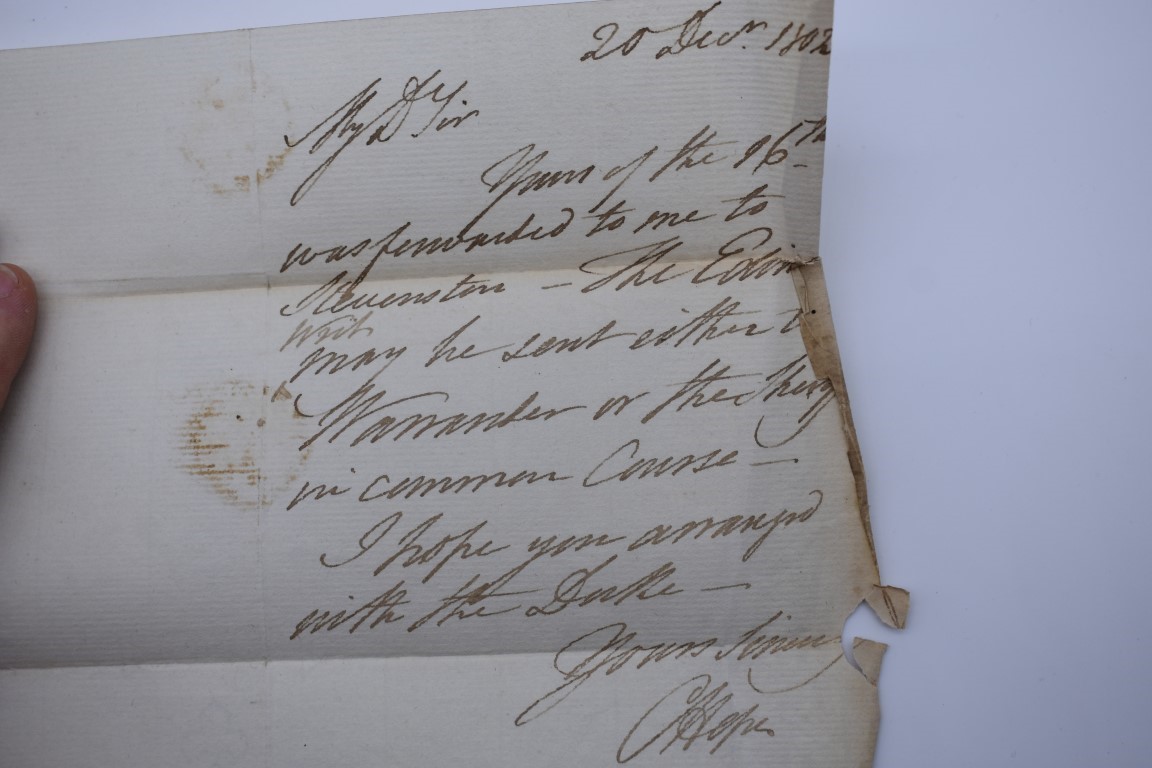 20 Decr. 1802
My Dr Sir
Yours of the 16th
was forwarded to me to
Stevenston – The Edinr
writ
may be sent either to
Warrander or the
in common Course –
I hope you arranged
with the Duke –
Yours Sincy
CHope